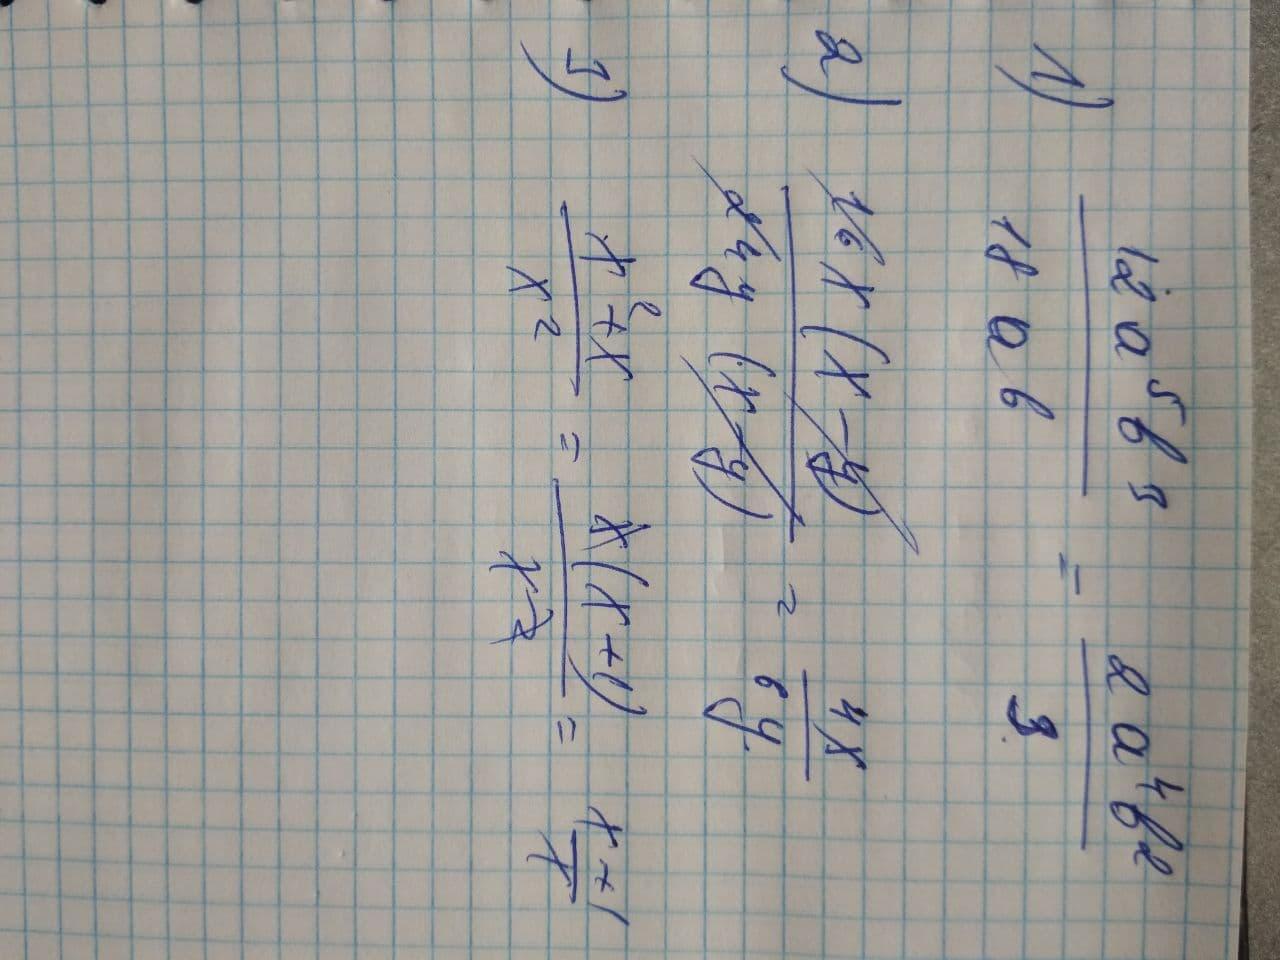 1) 12a⁵b⁵ / 18ab = 2a⁴b² / 3
2) 16x(x-y) / 24y(x-y) = 4x / 6y
3) x²+x / x² = x(x+1) / x² = x+1 / x